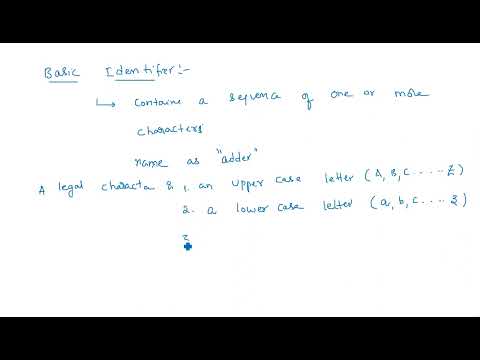 Basic Identifier:-
↳ Contains a sequence of one or more
characters
name as "adder"
A legal character is 1. an upper case letter (A, B, C .... Z)
2. a lower case letter (a, b, c .... z)